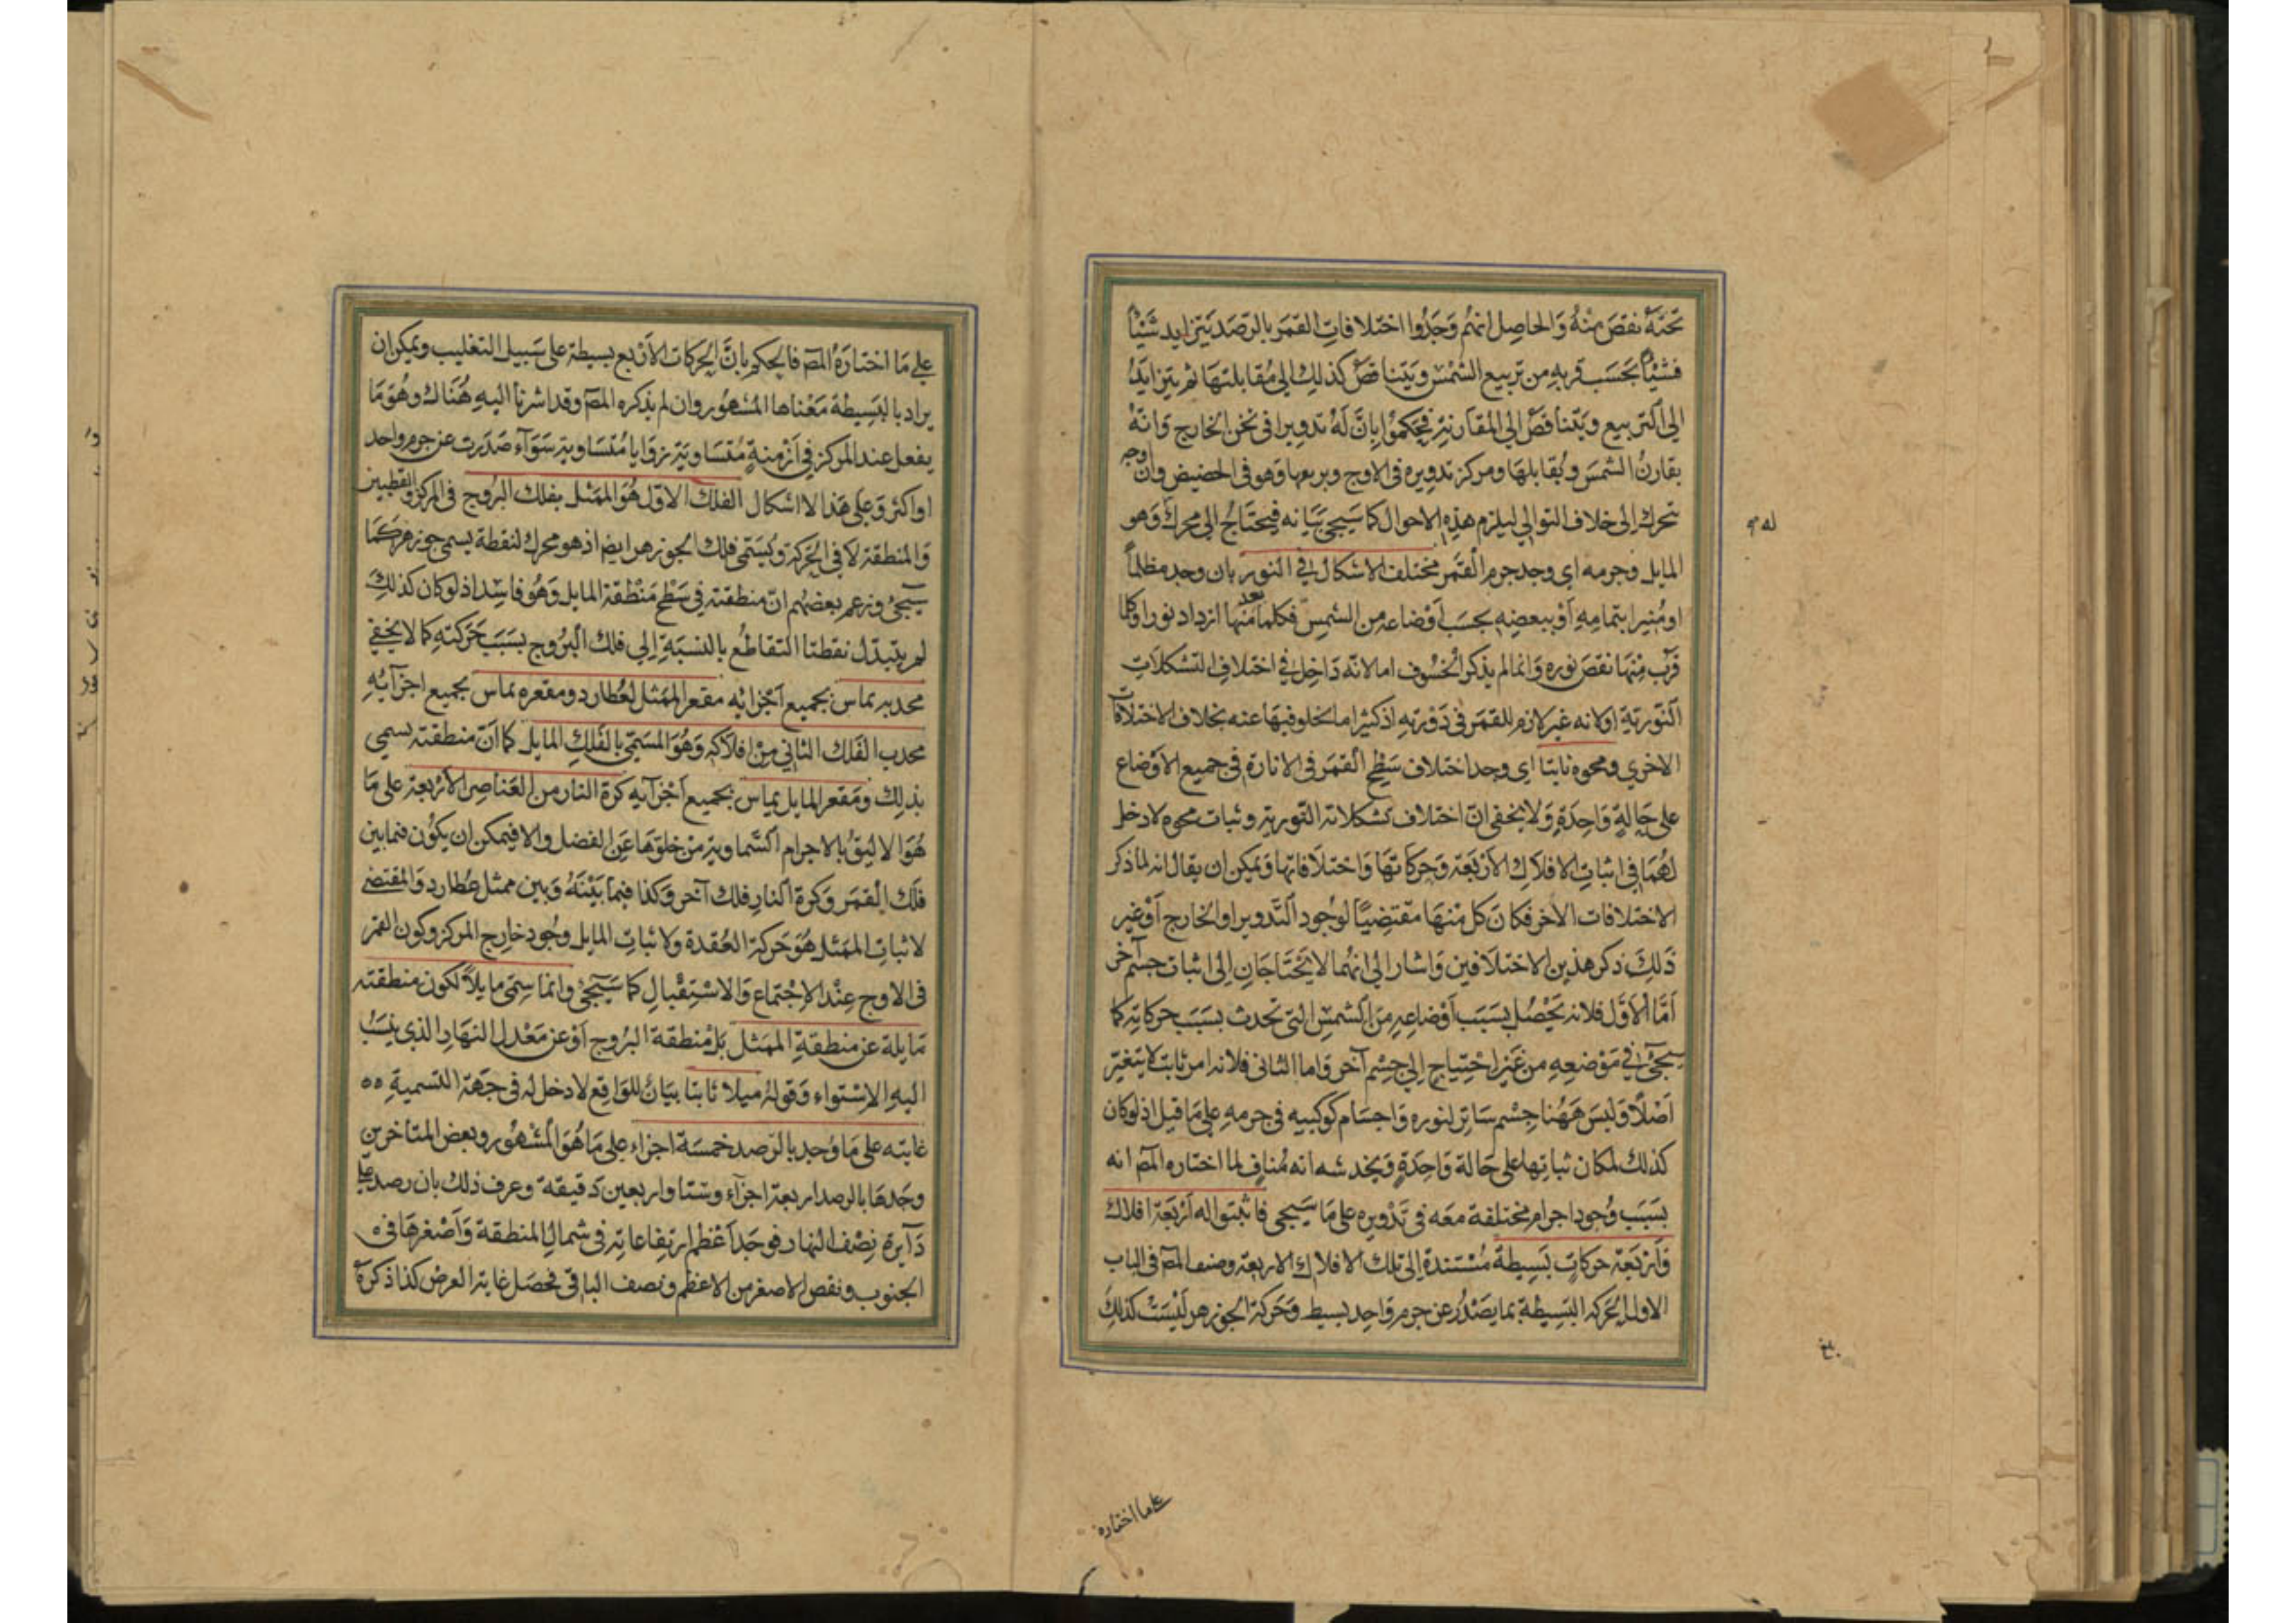 تحته نقص منه والحاصل انهم وجدوا اختلافات القمر بالرصد يتزايد شيئاً
فشيئاً بحسب قربه من تربيع الشمس ويتناقص كذلك الى مقابلتها ثم يتزايد
الى التربيع ويتناقص الى المقارنة فحكموا بان له تدويرا في ثخن الخارج وانه
يقارن الشمس ويقابلها ومركز تدويره في الاوج ويربعها وهو في الحضيض وان اوجه
تحرك الى خلاف التوالي ليلزم هذه الاحوال كما سيجئ بيانه فيحتاج الى محرك وهو
له
المايل وجرمه اي وجد جرم القمر مختلف الاشكال في النور بان وجد مظلماً
او منيرا بتمامه او ببعضه بحسب اوضاعه من الشمس فكلما بعد منها ازداد نورا وكلما
قرب منها نقص نوره وانما لم يذكر الخسوف اما لانه داخل في اختلاف التشكلات
النورية او لانه غير لازم للقمر في دورته اذ كثيرا ما يخلو فيها عنه بخلاف الاختلافات
الاخرى ومحوه ثابتا اي وجد اختلاف سطح القمر في الانارة في جميع الاوضاع
على حالة واحدة ولا يخفى ان اختلاف تشكلاته النورية وثبات محوه لا دخل
لهما في اثبات الافلاك الاربعة وحركاتها واختلافاتها ويمكن ان يقال انه لما ذكر
الاختلافات الاخر فكان كل منها مقتضيًا لوجود التدوير او الخارج او غير
ذلك ذكر هذين الاختلافين واشار الى انهما لا يحتاجان الى اثبات جسم آخر
اما الاول فلانه يحصل بسبب اوضاعه من الشمس التي تحدث بسبب حركاته كما
سيجئ في موضعه من غير احتياج الى جسم آخر واما الثاني فلانه امر ثابت لا يتغير
اصلا وليس ههنا جسم ساتر لنوره واجسام كوكبيه في جرمه على ما قيل اذ لو كان
كذلك لمكان ثباتها على حالة واحدة ويخدشه انه مناف لما اختاره المص انه
بسبب وجود اجرام مختلفة معه في تدويره على ما سيجي فاثبتوا له اربعة افلاك
واربعة حركات بسيطة مستندة الى تلك الافلاك الاربعة وصف المص في الباب
الاول الحركة البسيطة بما يصدر عن جرم واحد بسيط وحركة الجوزهر ليست كذلك
على ما اختاره
على ما اختاره المص فالحكم بان الحركات الاربع بسيطة على سبيل التغليب ويمكن ان
يراد بالبسيطة معناها المشهور وان لم يذكره المص وقد اشرنا اليه هناك وهو ما
يفعل عند المركز في ازمنة متساوية زوايا متساوية سواء صدرت عن جرم واحد
او اكثر وعلى هذا لا اشكال الفلك الاول هو الممثل بفلك البروج في المركز والقطبين
والمنطقة لا في الحركة ويسمى فلك الجوزهر ايضا اذ هو محرك لنقطة يسمى جوزهر كما
سيجئ وزعم بعضهم ان منطقته في سطح منطقة المايل وهو فاسد اذ لو كان كذلك
لم يتبدل نقطتا التقاطع بالنسبة الى فلك البروج بسبب حركته كما لا يخفى
محدبه يماس بجميع اجزائه مقعر الممثل لعطارد ومقعره يماس بجميع اجزائه
محدب الفلك الثاني من افلاكه وهو المسمى بالفلك المايل كما ان منطقته يسمى
بذلك ومقعر المايل يماس بجميع اجزآيه كرة النار من العناصر الاربعة على ما
هو الاليق بالاجرام السماوية من خلوها عن الفضل والا فيمكن ان يكون فيما بين
فلك القمر وكرة النار فلك آخر وكذا فيما بينه وبين ممثل عطارد والمقتضى
لاثبات الممثل هو حركة العقدة ولاثبات المايل وجود خارج المركز وكون القمر
في الاوج عند الاجتماع والاستقبال كما سيجئ وانما سمي مايلا لكون منطقته
مايلة عن منطقة الممثل بل منطقة البروج او عن معدل النهار الذي ينسب
اليه الاستواء وقوله ميلا ثابتا بيان للواقع لا دخل له في جهة التسمية ٥٥
غايته على ما وجد بالرصد خمسة اجزاء على ما هو المشهور وبعض المتاخرين
وجدها بالرصد اربعة اجزآء وستا واربعين دقيقة وعرف ذلك بان رصد على
دآيرة نصف النهار فوجد اعظم ارتفاعاته في شمال المنطقة واصغرها في
الجنوب ونقص الاصغر من الاعظم ونصف الباقي فحصل غاية العرض كذا ذكره